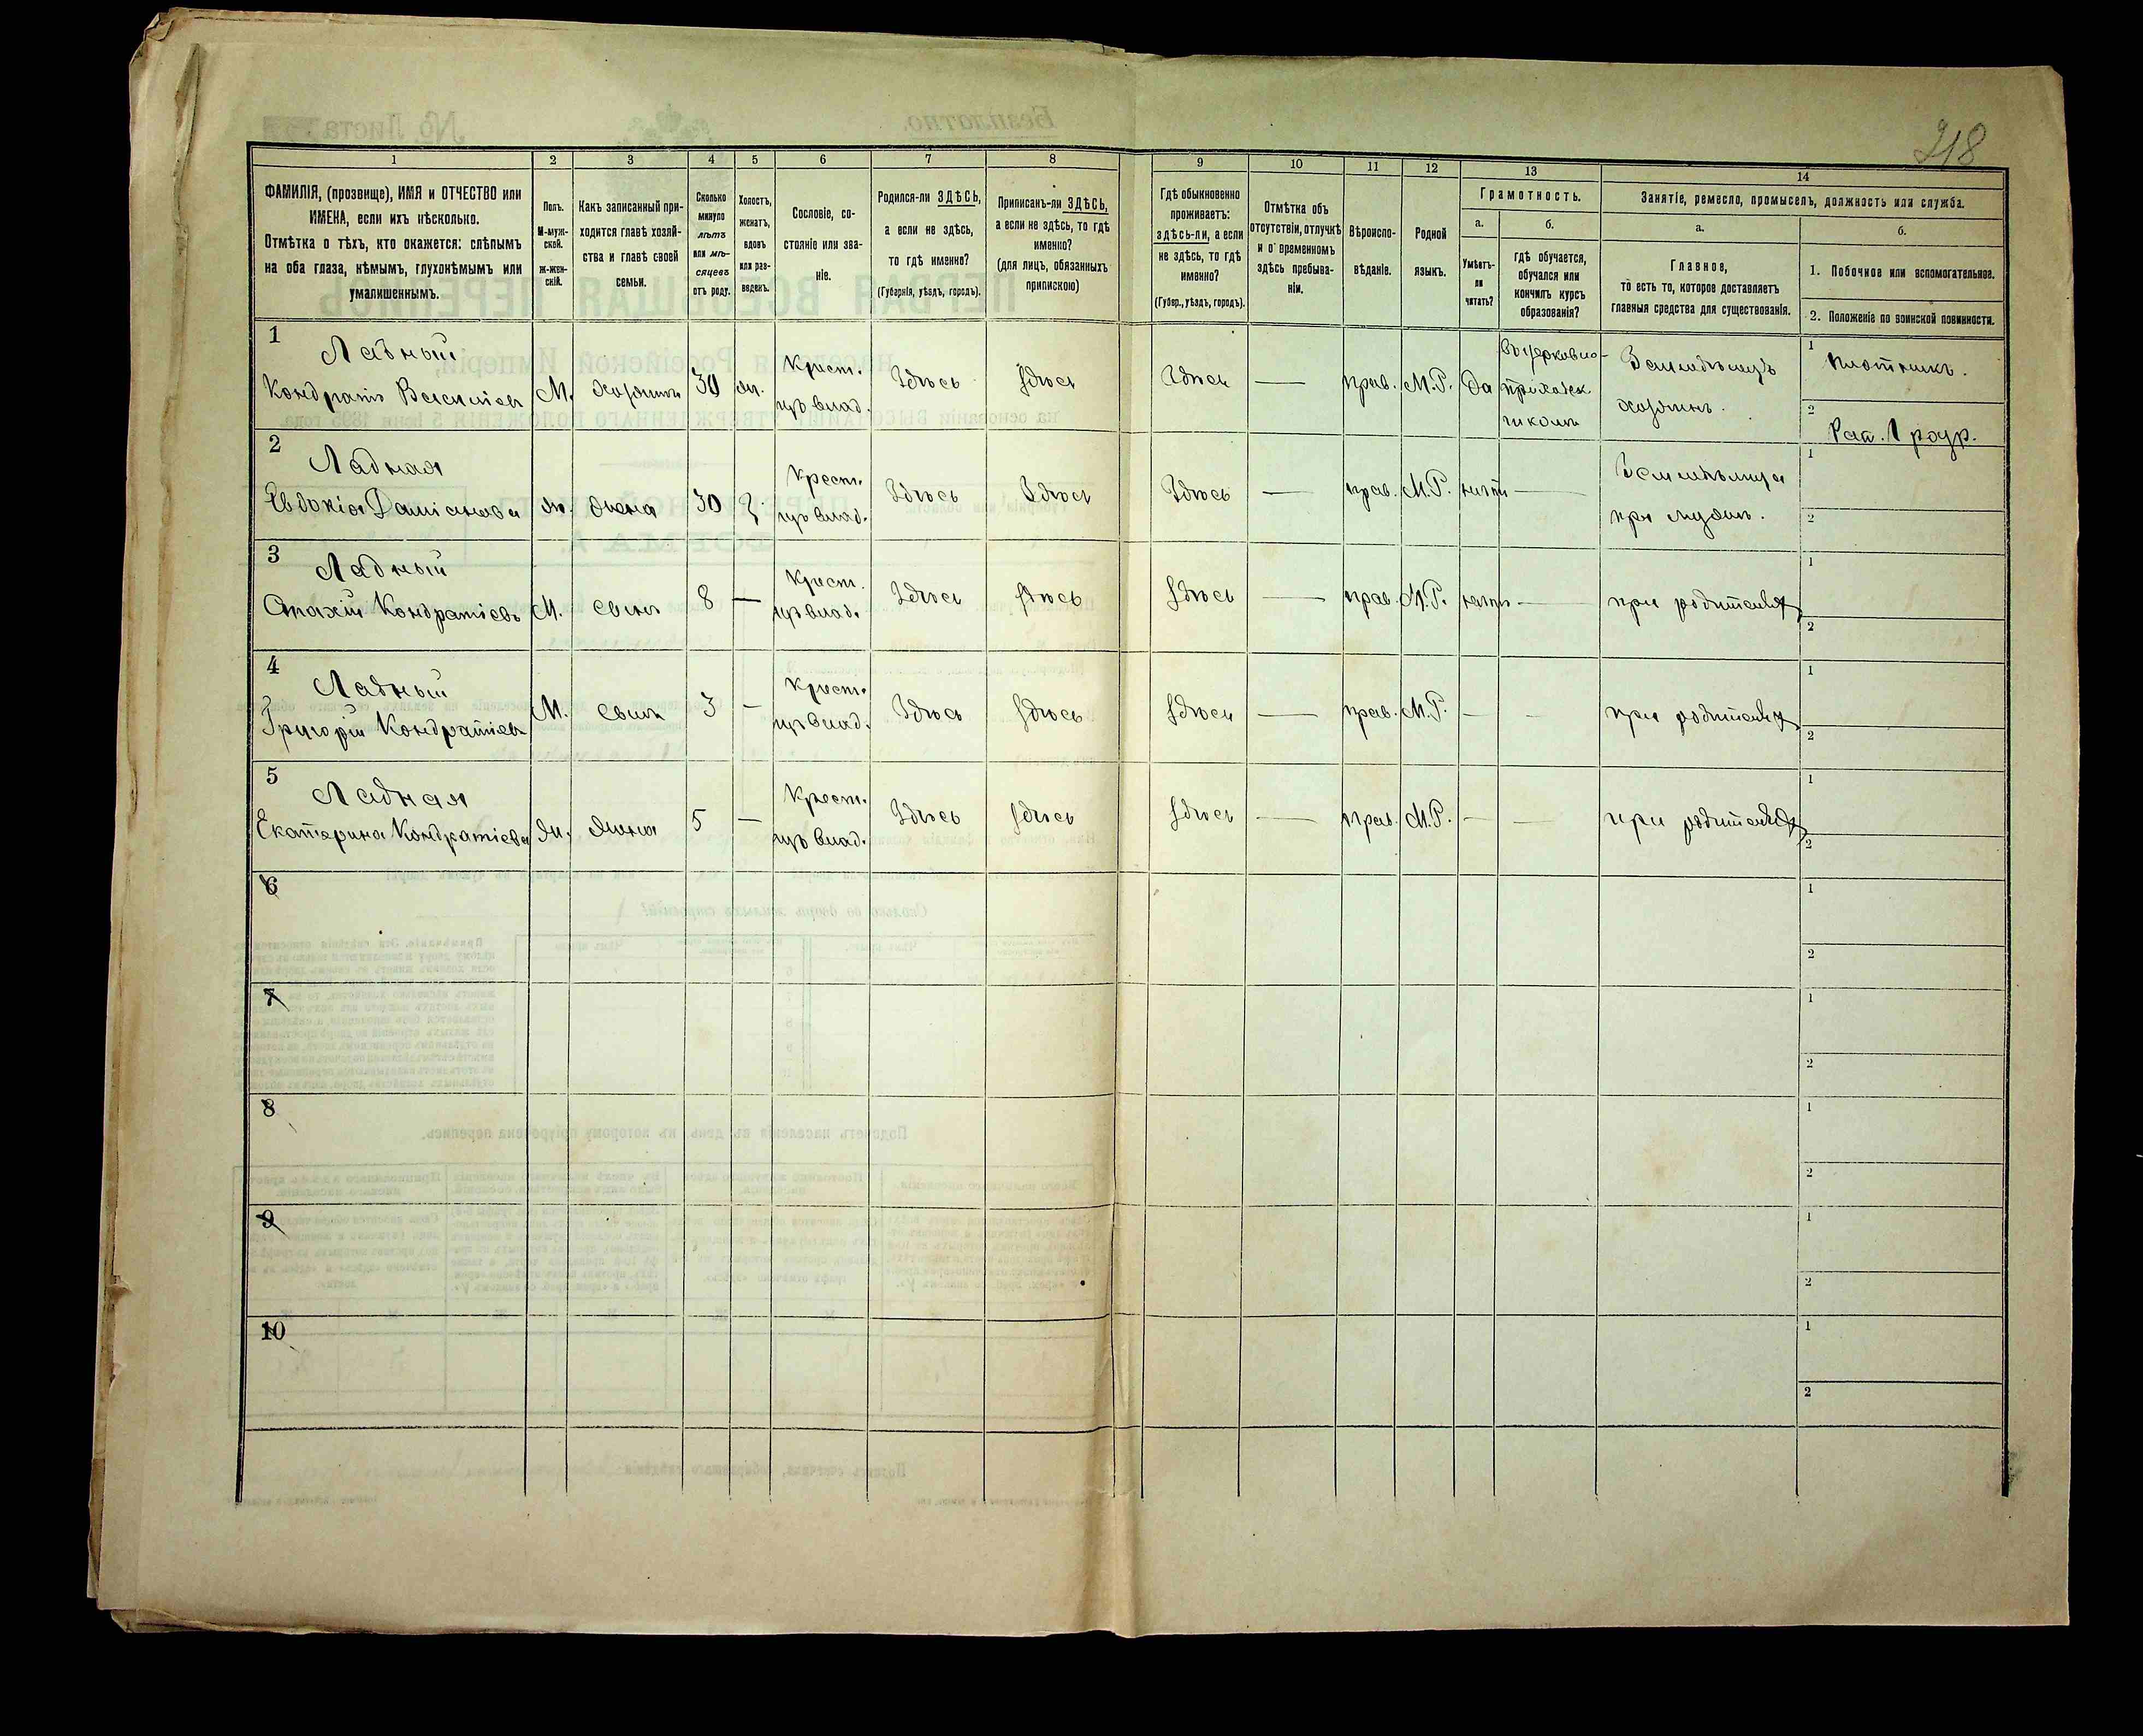 218
1 2 3 4 5 6 7 8 9 10 11 12 13 14
ФАМИЛІЯ, (прозвище), ИМЯ и ОТЧЕСТВО или
ИМЕНА, если ихъ нѣсколько.
Отмѣтка о тѣхъ, кто окажется: слѣпымъ
на оба глаза, нѣмымъ, глухонѣмымъ или
умалишеннымъ.
Полъ.
М-муж-
ской.
ж-жен-
скій.
Какъ записанный при-
ходится главѣ хозяй-
ства и главѣ своей
семьи.
Сколько
минуло
лѣтъ
или мѣ-
сяцевъ
отъ роду.
Холостъ,
женатъ,
вдовъ
или раз-
веденъ.
Сословіе, со-
стояніе или зва-
ніе.
Родился-ли ЗДѢСЬ,
а если не здѣсь,
то гдѣ именно?
(Губернія, уѣздъ, городъ).
Приписанъ-ли ЗДѢСЬ,
а если не здѣсь, то гдѣ
именно?
(для лицъ, обязанныхъ
припискою)
Гдѣ обыкновенно
проживаетъ:
здѣсь-ли, а если
не здѣсь, то гдѣ
именно?
(Губер., уѣздъ, городъ).
Отмѣтка объ
отсутствіи, отлучкѣ
и о временномъ
здѣсь пребыва-
ніи.
Вѣроиспо-
вѣданіе.
Родной
языкъ.
Грамотность.
а.
Умѣетъ-
ли
читать?
б.
гдѣ обучается,
обучался или
кончилъ курсъ
образованія?
Занятіе, ремесло, промыселъ, должность или служба.
а.
Главное,
то есть то, которое доставляетъ
главныя средства для существованія.
б.
1. Побочное или вспомогательное.
2. Положеніе по воинской повинности.
1
Ладный
Кондратъ Василіевъ
М.
хозяинъ
30
ж.
Крест.
изъ влад.
Здѣсь
Здѣсь
Здѣсь
—
прав.
М.Р.
Да
въ церковно-
приходск
школѣ
Земледѣлецъ
хозяинъ.
1
Плотникъ.
2
Рат. 1 разр.
2
Ладная
Евдокія Даміанова
ж.
жена
30
з.
Крест.
изъ влад.
Здѣсь
Здѣсь
Здѣсь
—
прав.
М.Р.
нѣтъ
—
Земледѣлица
при мужѣ.
1
2
3
Ладный
Кондратіевъ
М.
сынъ
8
—
Крест.
изъ влад.
Здѣсь
Здѣсь
Здѣсь
—
прав.
М.Р.
нѣтъ
—
при родителяхъ
1
2
4
Ладный
Григорій Кондратіевъ
М.
сынъ
3
—
Крест.
изъ влад.
Здѣсь
Здѣсь
Здѣсь
—
прав.
М.Р.
—
—
при родителяхъ
1
2
5
Ладная
Екатерина Кондратіева
ж.
дочь
5
—
Крест.
изъ влад.
Здѣсь
Здѣсь
Здѣсь
—
прав.
М.Р.
—
—
при родителяхъ
1
2
6
1
2
7
1
2
8
1
2
9
1
2
10
1
2